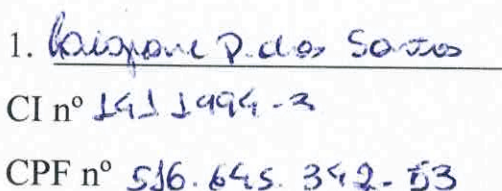 1. P. dos Santos
CI nº 1411994-2
CPF nº 516.645.342-53